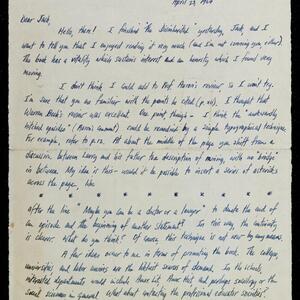 April 23, 1964
Dear Jack,
Hello, there! I finished "The Disinherited" yesterday, and I
want to tell you that I enjoyed reading it very much (and I'm not conning you, either).
The book has a vitality which sustains interest and an honesty which I found very
moving.
I don't think I could add to Prof Aaron's review, so I won't try.
I'm sure that you are familiar with the points he cited (p. xii). I thought that
Warren Beck's review was excellent. One point though - I think the "awkwardly
hitched episodes" (Aaron's comment) could be remedied by a simple typographical technique
For example, refer to p. 23. At about the middle of the page you shift from a
discussion between Larry and his father to a description of moving, with no bridge
in between. My idea is this - would it be possible to insert a series of asterisks
across the page, like
* * * * * * * * *
after the line "Maybe you can be a doctor or a lawyer" to denote the end of
an episode and the beginning of another statement? In this way, the continuity
is clearer. What do you think? Of course, this technique is not new by any means.
A few ideas occur to me in terms of promoting the book. The colleges,
universities and labor unions are the likeliest sources of demand. In the schools,
interested departments would include Amer Lit, Amer Hist and perhaps sociology or the
social sciences in general. What about contacting the professional education societies?